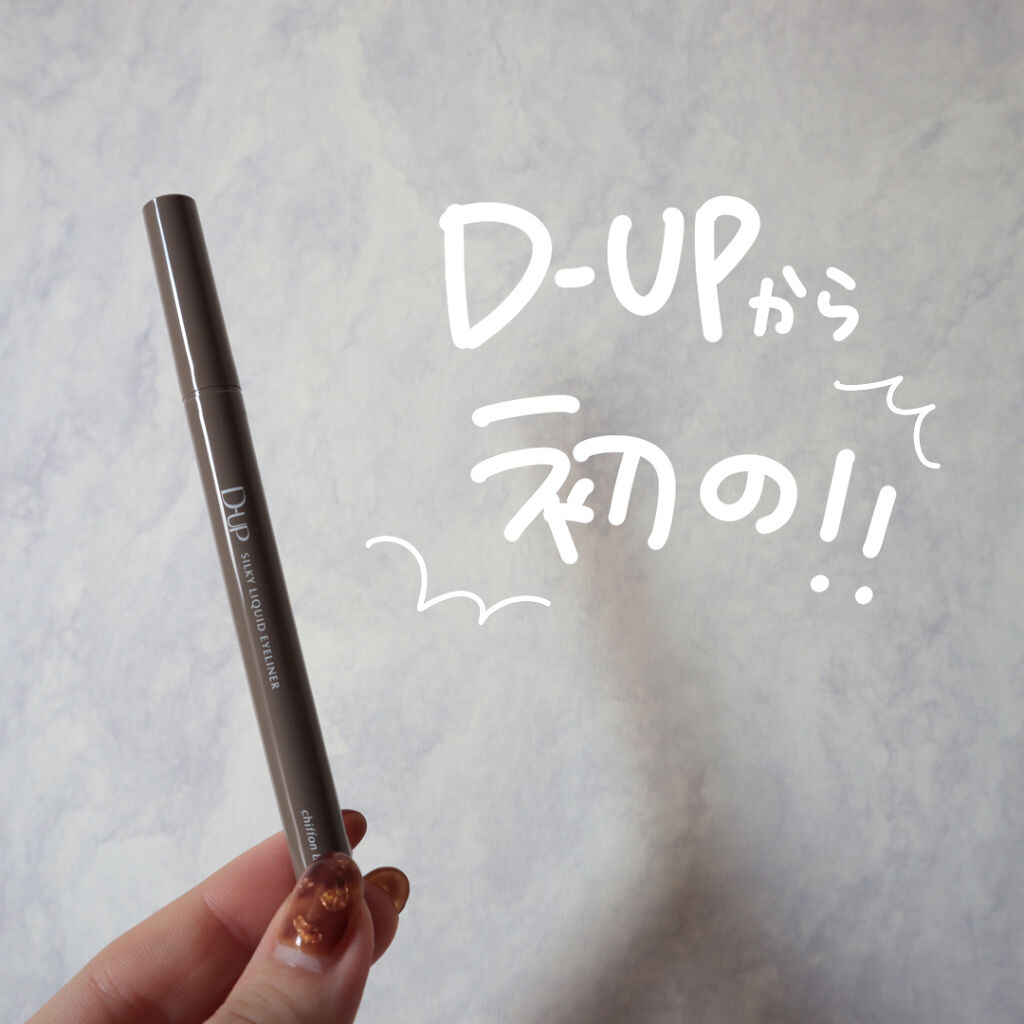 D-UPから
初の!!
D-UP SILKY LIQUID EYELINER
chiffon